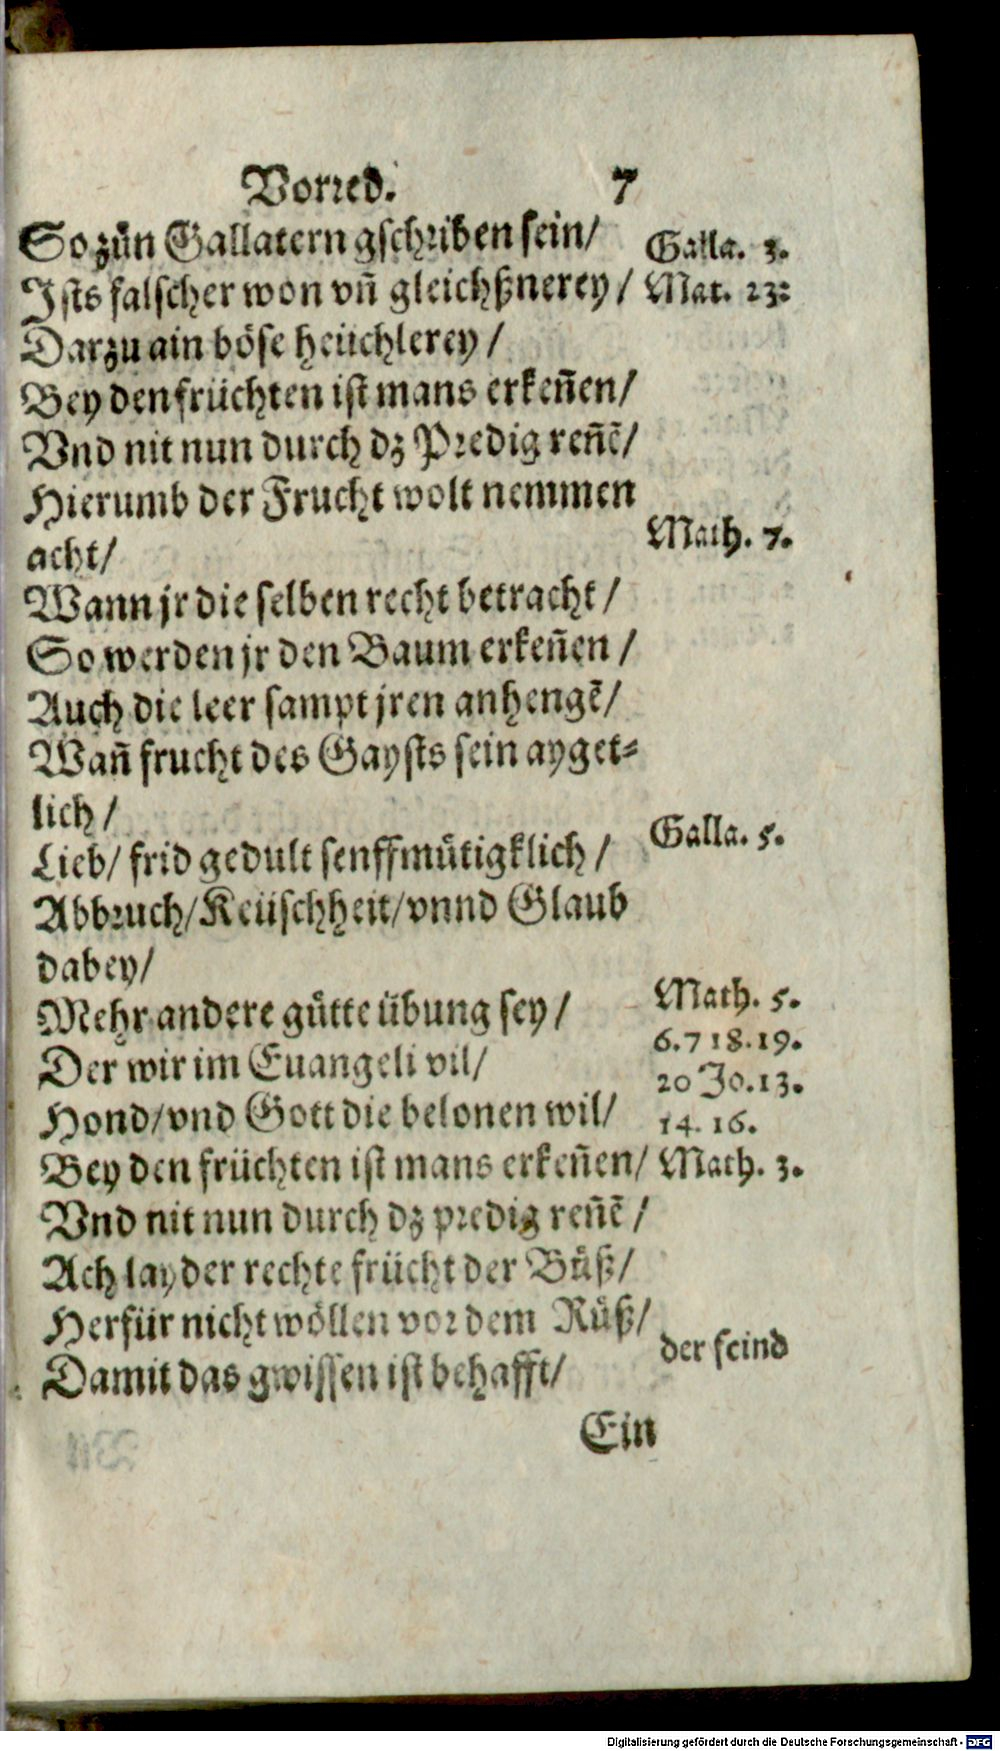 Vorred. 7
So zůn Gallatern gschriben sein/ Galla. 3.
Ists falscher won vñ gleichßnerey/ Mat. 23:
Darzu ain böse heüchlerey/
Bey den früchten ist mans erkeñen/
Vnd nit nun durch dz Predig reñẽ/
Hierumb der Frucht wolt nemmen
acht/ Math. 7.
Wann jr die selben recht betracht/
So werden jr den Baum erkeñen/
Auch die leer sampt jren anhengẽ/
Wañ frucht des Gaysts sein ayget⸗
lich/
Lieb/ frid gedult senffmůtigklich/ Galla. 5.
Abbruch/Keüschheit/vnnd Glaub
dabey/
Mehr andere gůtte übung sey/ Math. 5.
Der wir im Euangeli vil/ 6.7 18.19.
Hond/vnd Gott die belonen wil/ 20 Jo.13.
14. 16.
Bey den früchten ist mans erkeñen/ Math. 3.
Vnd nit nun durch dz predig reñẽ/
Ach layder rechte frücht der Bůß/
Herfür nicht wöllen vor dem Růß/
der feind
Damit das gwissen ist behafft/
Ein
Digitalisierung gefördert durch die Deutsche Forschungsgemeinschaft - DFG